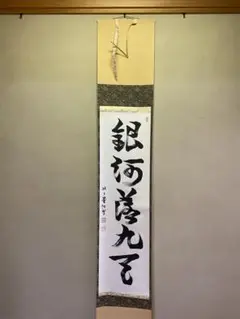 銀河落九天